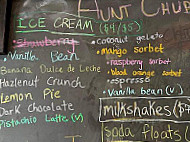 HUNT CHUB
ICE CREAM ($4/$5)
strawberry
• Vanilla Bean
Banana Dulce de Leche
Hazelnut Crunch
Lemon Pie
Dark Chocolate
Pistachio Latte (v)
• coconut gelato
• mango sorbet
• raspberry sorbet
• blood orange sorbet
• espresso
Vanilla bean (v)
milkshakes ($7
soda floats (